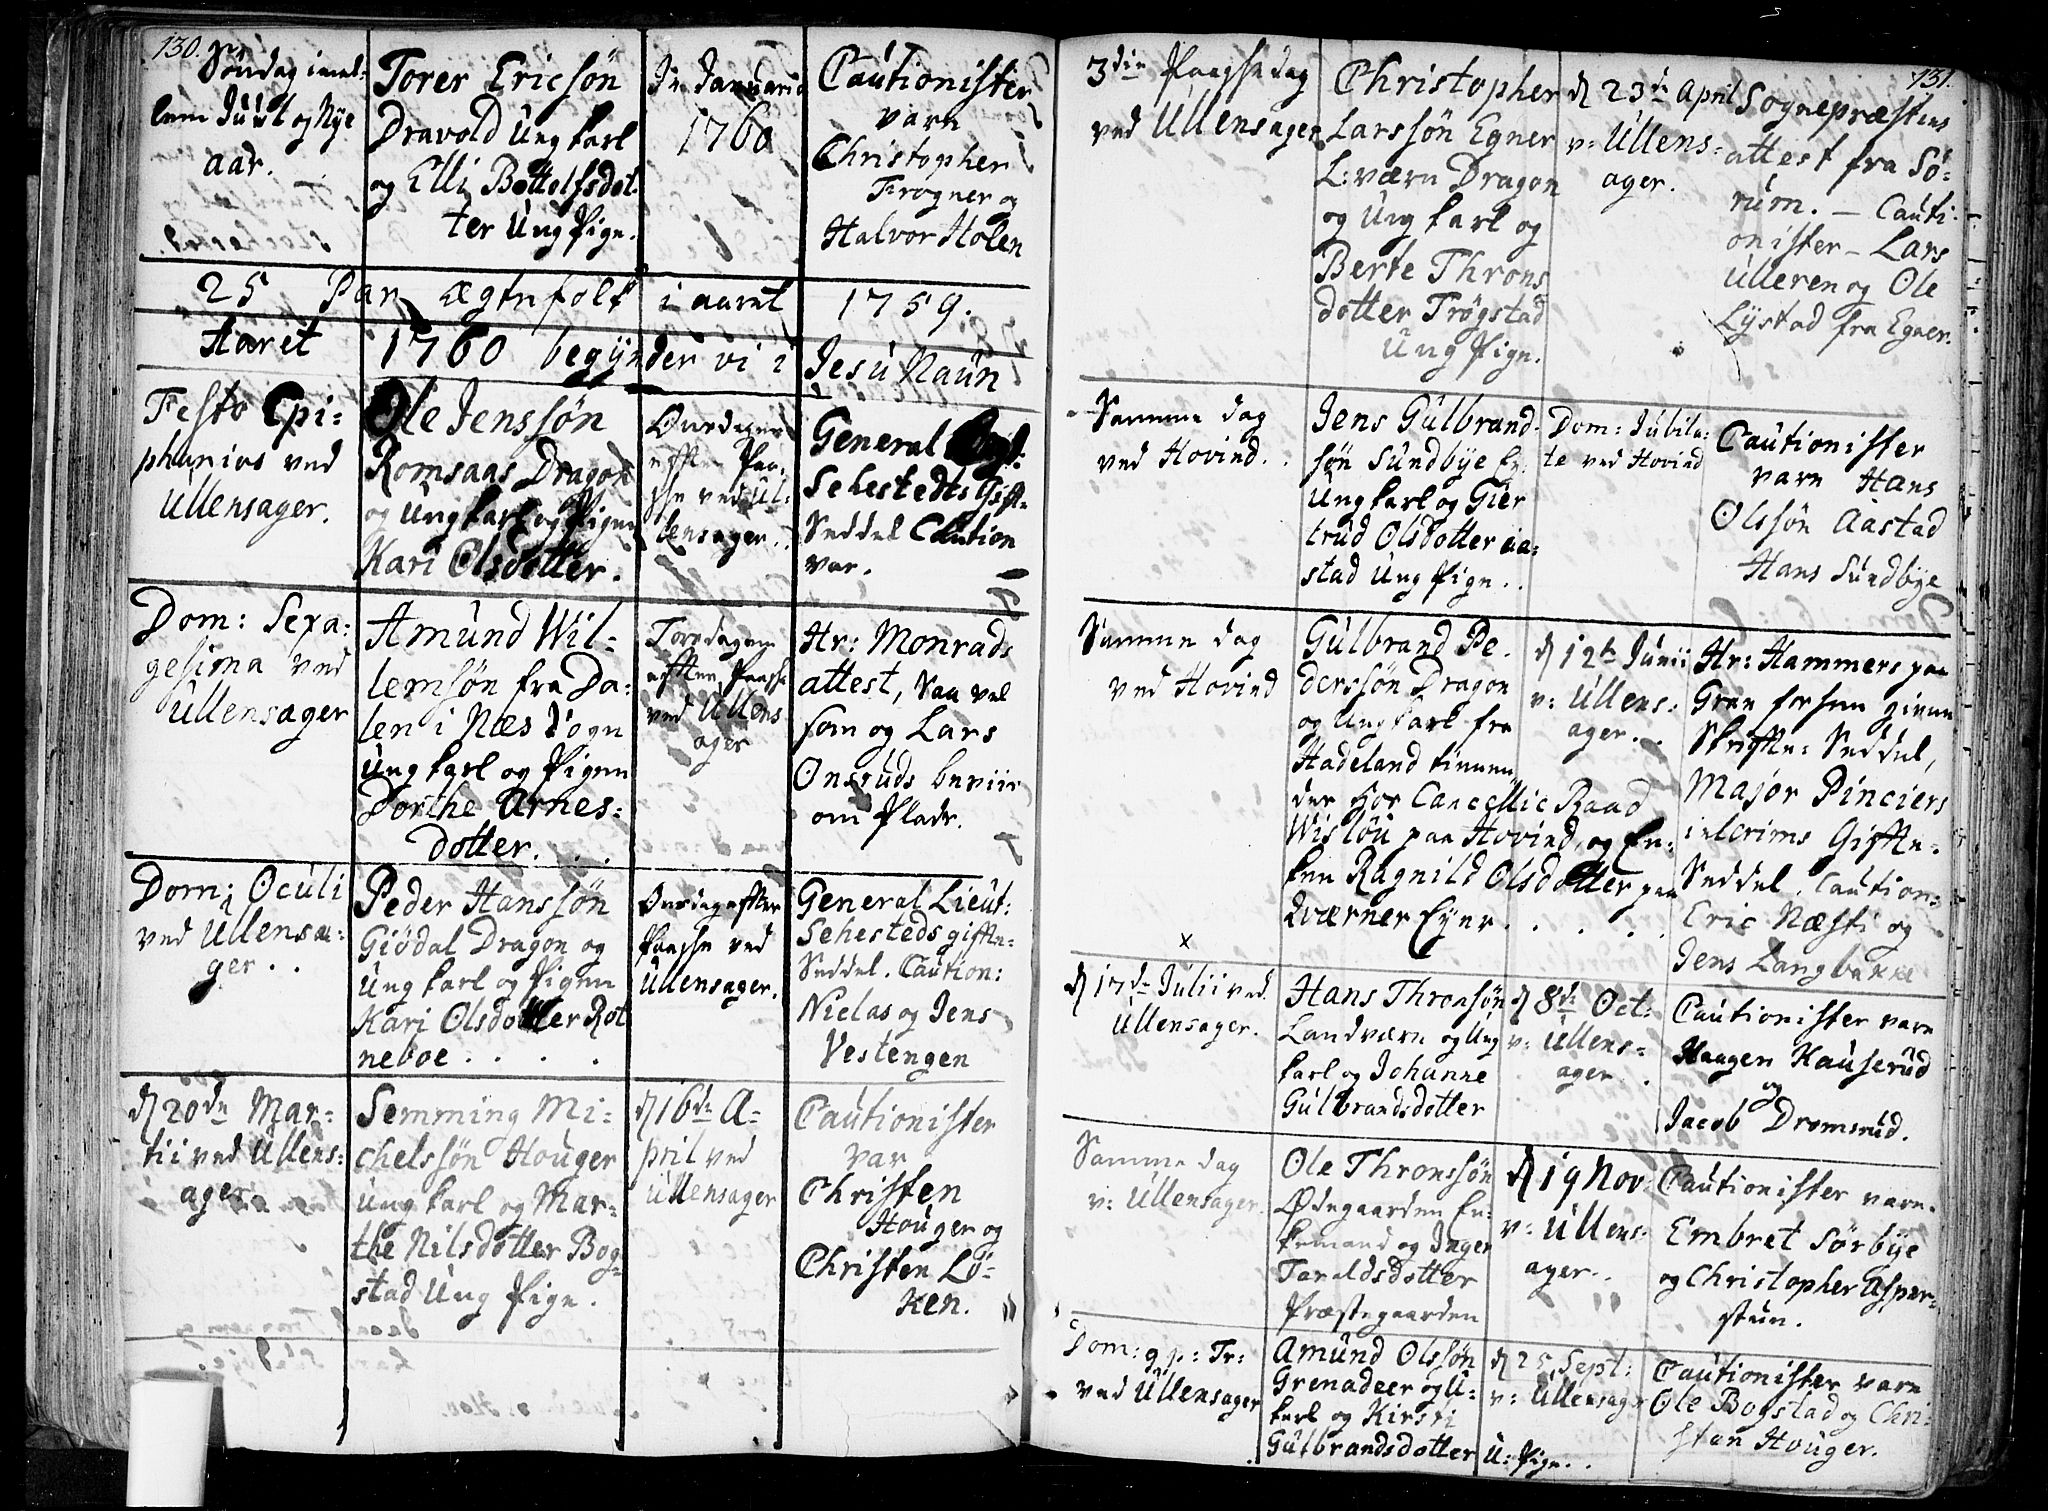 130.
Söndag imel-
lem Juul og Nye
aar.
Torer Ericsön
Dravold Ung karl
og Elli Bottolfsdot-
ter Ung Pige.
Januario
1760
Cautionister
vare
Christopher
Frogner og
Halvor Holen
25 Par Ægtefolk i aaret 1759.
Aaret 1760 begynder vi i Jesu Naun
Festo Epi-
phanias ved
Ullensager.
Ole Jenssön
Romsaas Dragon
og Ung karl og Pigen
Kari Olsdotter.
Onsdagen
efter Paa-
ske ved Ul-
lensager.
General
Sehestedts Gifte
Seddel Caution
var.
Dom: Sexa-
gesima ved
Ullensager
Amund Wil-
lemsön fra Da-
len i Næs Sogn
Ung karl og Pigen
Dorthe Arnes-
dotter. . .
Torsdagen
efter Paaske
ved Ullens
ager
Hr: Monrads
attest, saa vel
som og Lars
Onsruds beviis
om Plads.
Dom: Oculi
ved Ullensa-
ger . .
Peder Hanssön
Giödal Dragon og
Ung karl og Pigen
Kari Olsdotter Rot
neboe . . . .
Onsdag efter
Paaske ved
Ullensager.
General Lieut:
Sehesteds gifte-
Seddel. Caution:
Niclas og Jens
Vestengen
d 20de Mar-
tii ved Ullens-
ager.
Semming Mi-
chelssön Houger
Ung karl og Mar-
the Nilsdotter Bog-
stad Ung Pige.
d 16de A-
pril ved
Ullensager
Cautionister
var
Christen
Houger og
Christen Lö-
ken.
131.
3die Paaskedag
ved Ullensager
Christopher
Larssön Egner
L: værn Dragon
og Ung karl og
Berte Throns
dotter Trögstad
Ung Pige.
d 23de April
v: Ullens-
ager.
Sognepræstens
attest fra Sö-
rum. – Cauti-
onister – Lars
Ulleren og Ole
Lystad fra Egner.
Samme dag
ved Hovind. .
Jens Gulbrand-
sön Sundbye
Ung karl og Gier
trud Olsdotter Aa-
stad Ung Pige. .
Dom: Jubila-
te ved Hovind
Cautionister
vare Hans
Olssön Aastad
Hans Sundbye
Samme dag
ved Hovind
Gulbrand Pe-
derssön Dragon
og Ung karl fra
Hadeland tienen-
der hos Cancellie Raad
Wislöu paa Hovind, og En-
ken Ragnild Olsdotter paa
Qværner Eyer . . . .
d 12te Junii
v: Ullens-
ager. .
Hr: Hammers paa
Gran for ham givne
Skrifte-Seddel,
Major Pinciers
interims Gifte-
Seddel. Caution:
Eric Næsti og
Jens Langbakke
x
d 17de Julii ved
Ullensager.
Hans Thronsön
Landværn og Ung
karl og Johanne
Gulbrandsdotter
d 8de Oct:
v: Ullens-
ager . .
Cautionister vare
Haagen Hauserud
og
Jacob Dromsrud.
Samme dag
v: Ullensager.
Ole Thronssön
Ødegaarden En-
kemand og Inger
Taraldsdotter
Præstegaarden
d 19 Nov:
v: Ullens-
ager. .
Cautionister vare
Embret Sörbye
og Christopher Asper-
stuen.
Dom: 9 p: Tr:
ved Ullensager
Amund Olssön
Grenadeer og U-
karl og Kirsti
Gulbrandsdotter
U: Pige. .
d 25 Sept:
v: Ullensager
Cautionister vare
Ole Bogstad og Chri-
sten Houger.